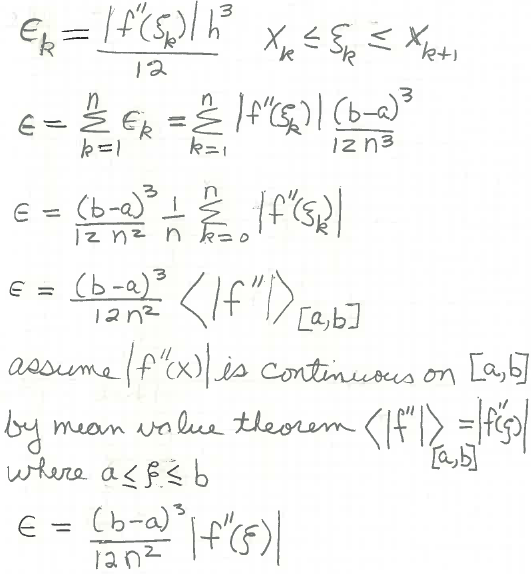 ϵₖ = |f″(ξₖ)|h³ / 12   xₖ ≤ ξₖ ≤ xₖ₊₁
ϵ = Σ_{k=1}^{n} ϵₖ = Σ_{k=1}^{n} |f″(ξₖ)| (b−a)³ / 12n³
ϵ = (b−a)³ / 12n² · 1/n Σ_{k=0}^{n} |f″(ξₖ)|
ϵ = (b−a)³ / 12n² ⟨|f″|⟩_[a,b]
assume |f″(x)| is continuous on [a,b]
by mean value theorem ⟨|f″|⟩_[a,b] = |f″(ξ)|
where a ≤ ξ ≤ b
ϵ = (b−a)³ / 12n² |f″(ξ)|